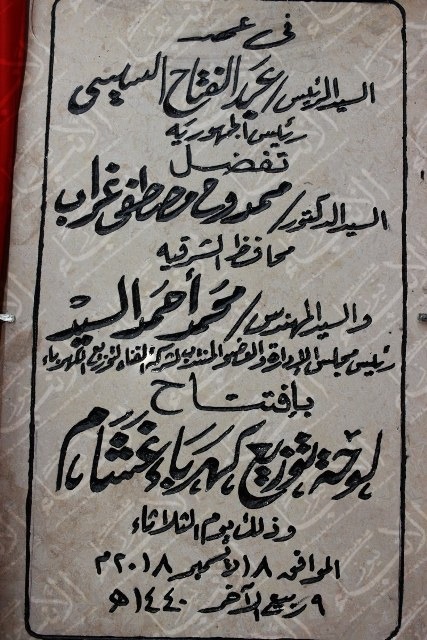 فى عهد
السيد الرئيس / عبد الفتاح السيسى
رئيس الجمهوريه
تفضل
السيد الدكتور / ممدوح مصطفى غراب
محافظ الشرقيه
والسيد المهندس / محمد أحمد السيد
رئيس مجلس الإدارة والعضو المنتدب لشركة القناة لتوزيع الكهرباء
بإفتتاح
لوحة توزيع كهرباء غشام
وذلك يوم الثلاثاء
الموافق ١٨ ديسمبر ٢٠١٨ م
٩ ربيع الآخر ١٤٤٠ هـ